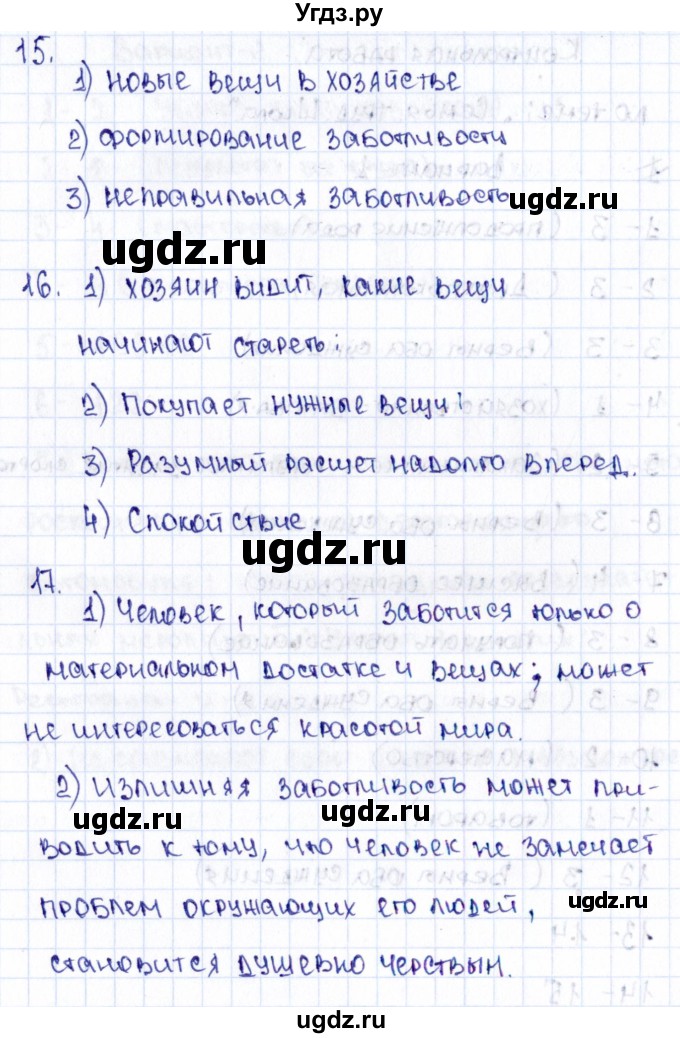 Угдз.ру
15.
1) новые вещи в хозяйстве
2) формирование заботливости
3) неправильная заботливость
ugdz.ru
ugdz.ru
16. 1) хозяин видит, какие вещи
начинают стареть;
2) Покупает нужные вещи;
3) Разумный расщет надолго вперед.
ugdz.ru
4) Спокойствие
ugdz.ru
17.
1) Человек, который заботится только о
материальном достатке и вещах; может
не интересоваться красотой мира.
ugdz.ru
2) Излишняя заботливость может при-
ugdz.ru
водить к тому, что человек не замечает
проблем окружающих его людей,
ugdz.ru
становится душевно черствым.
ugdz.ru